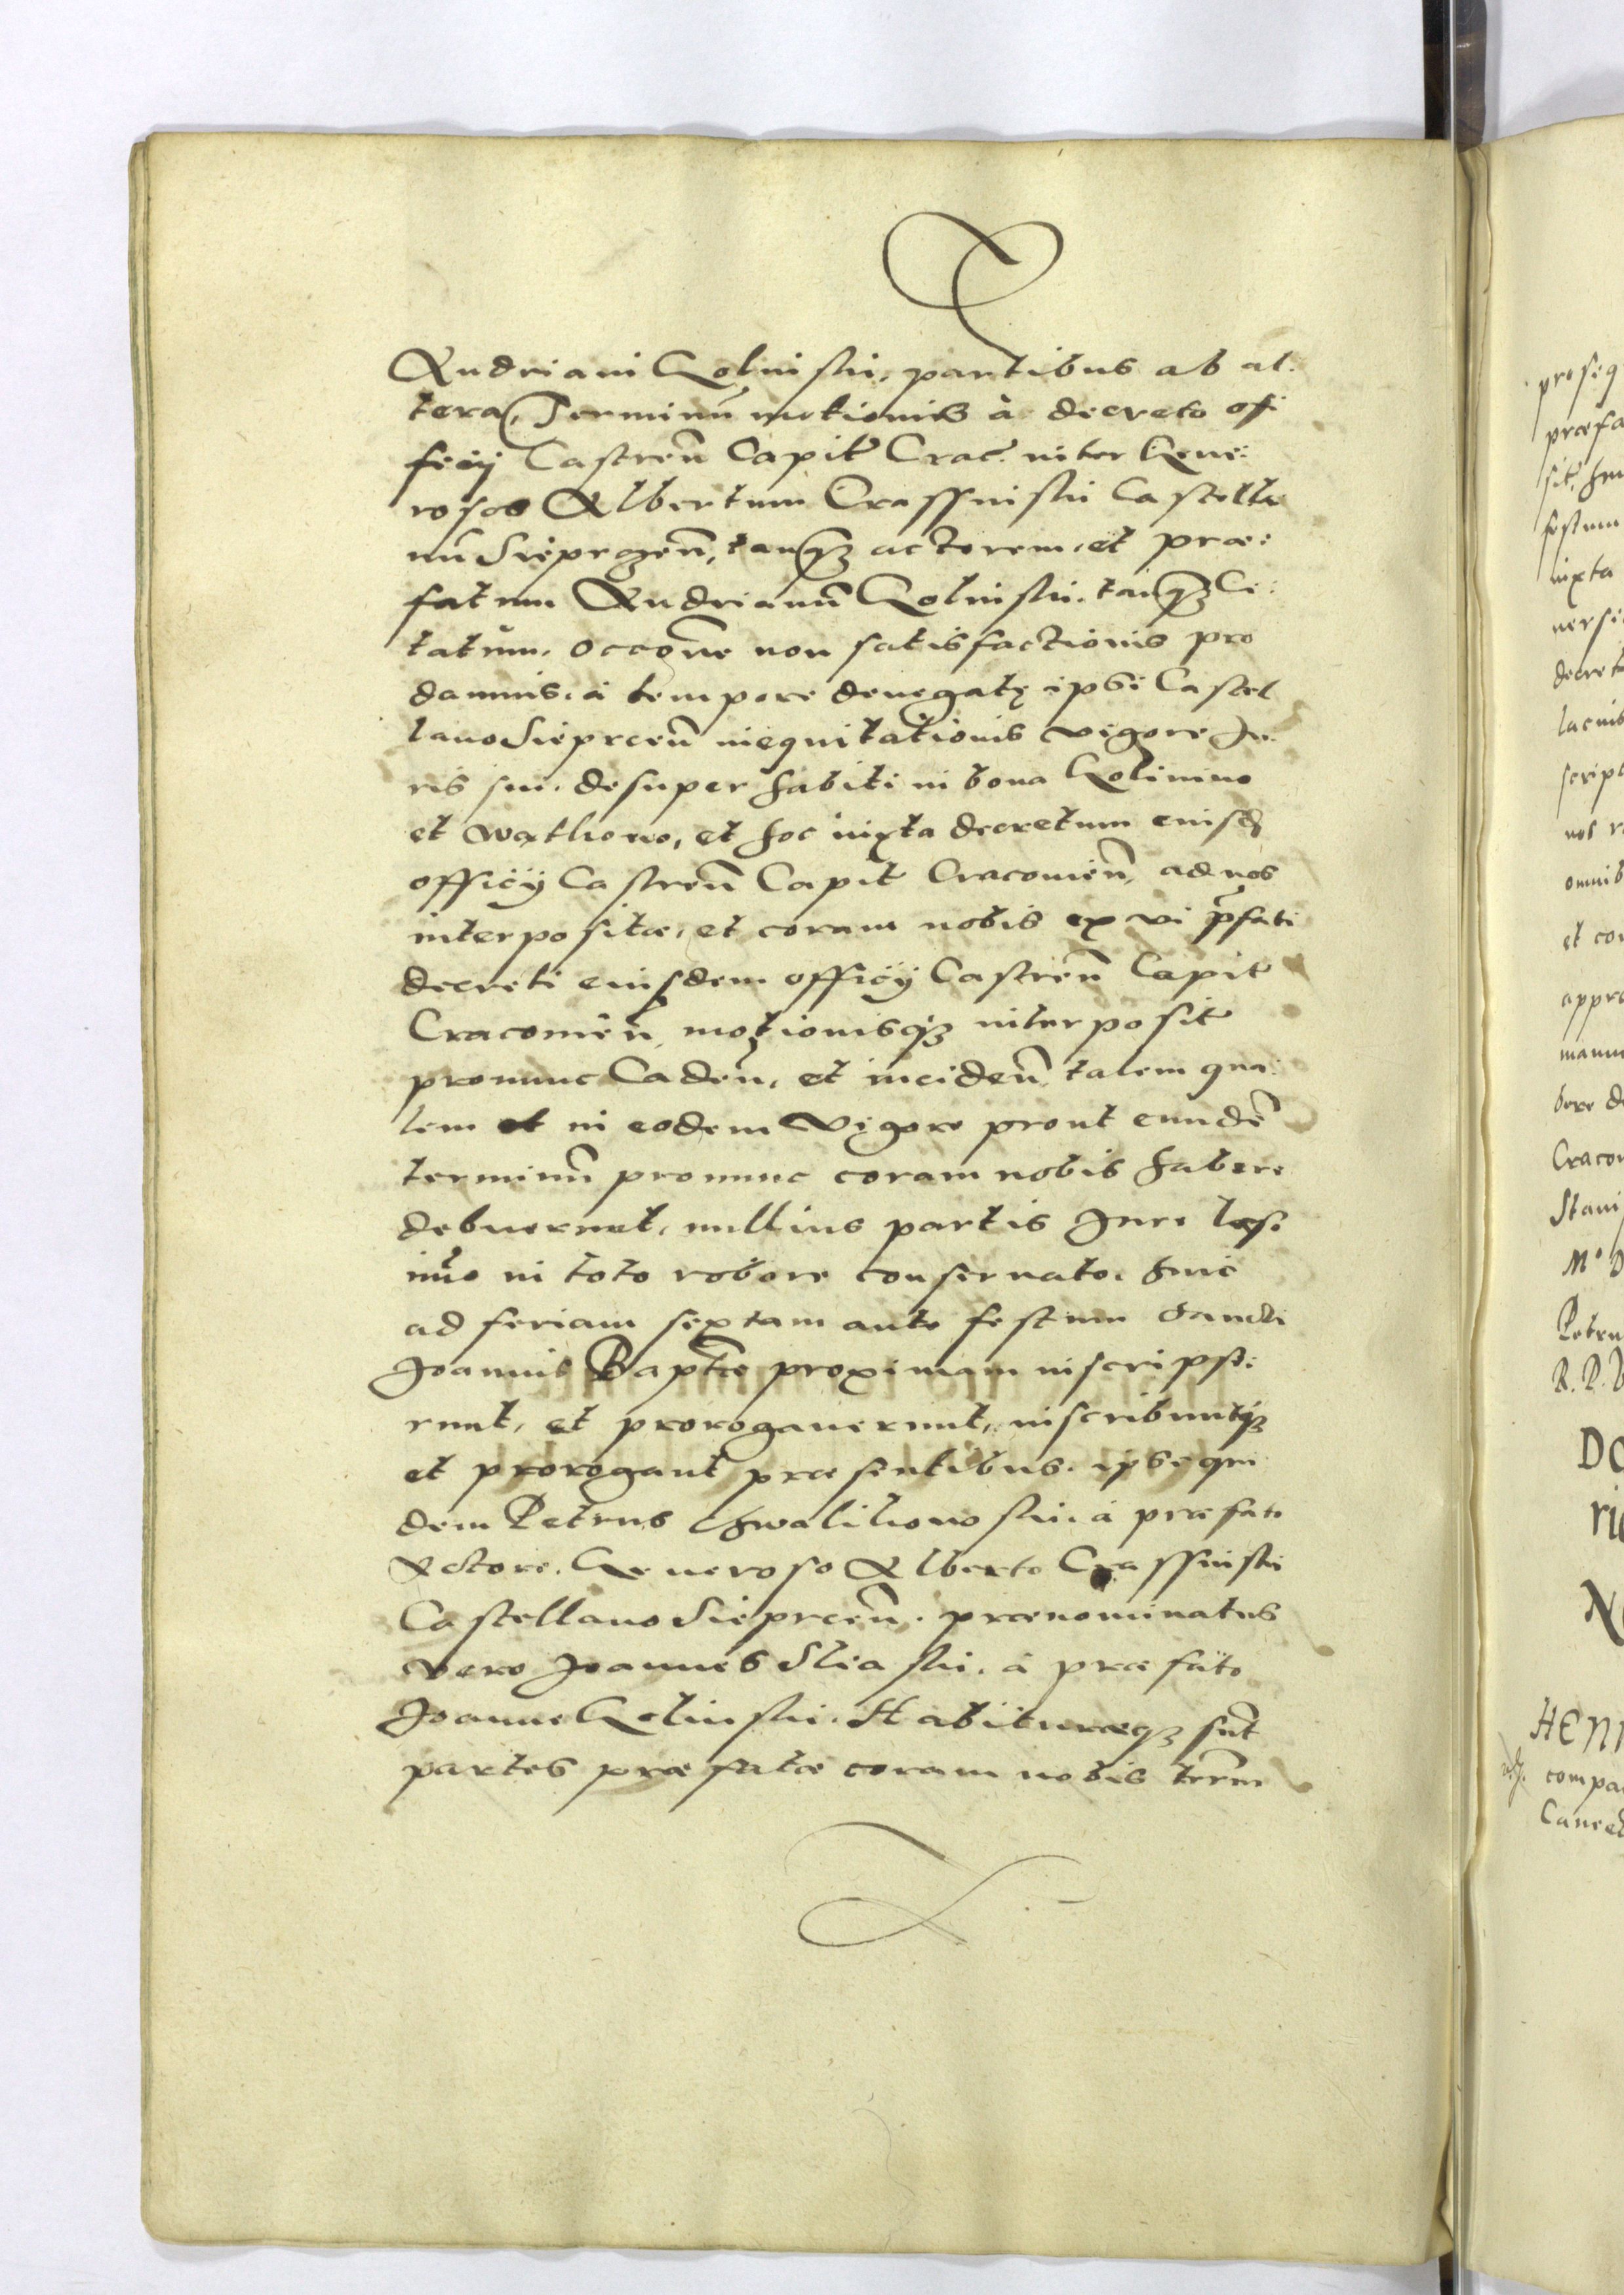 Andriani Golinski, partibus ab al
tera, Terminū motionis à decreto of
ficij Castreñ Capit Crac. inter Gene:
rosos Albertum Crassinski Castella
nū Sieprczeñ, tanq̃ actorem, et præ:
fatum Andrianū Golinski, tanq̃ Ci:
tatum, occone non satisfactionis pro
damnis, à tempore denegatę ipsi Castel
lano Sieprceñ inequitationis vigore Ju
ris sui, desuper habiti in bona Golinino
et , et hoc iuxta decretum eiusd
officij Castreñ Capit Cracovieñ, ad nos
interpositæ, et coram nobis ex vi p̃fati
decreti eiusdem officij Castreñ Capit
Cracovieñ, motionisq; interposit
pronunc Cadeñ, et incideñ, talem qua:
lem et in eodem vigore prout eundē
terminū pronunc coram nobis habere
debuerunt, nullius partis Jure læso
imo in toto robore conservato, hinc
ad feriam sextam ante festum Sancti
Joannis Baptæ proximam inscripse:
runt, et prorogaverunt, inscribuntq;
et prorogant præsentibus, ipse qui
dem Petrus Chwalikowski, à præfato
Actore, Generoso Alberto Crassinski
Castellano Sieprceñ, prænominatus
vero Joannes Sliaski, à præfato
Joanne Golinski. Habituræq; sunt
partes præfatæ coram nobis term
proseq
præfa
sit, hin
festum
iuxta
versi
decret
lacuib
script
nos r
omnib
et cor
appro
manu
bere d
Cracov
Stani
Mo D
Petru
R. P.
DO
ri
N
HENR
compa
Caneel